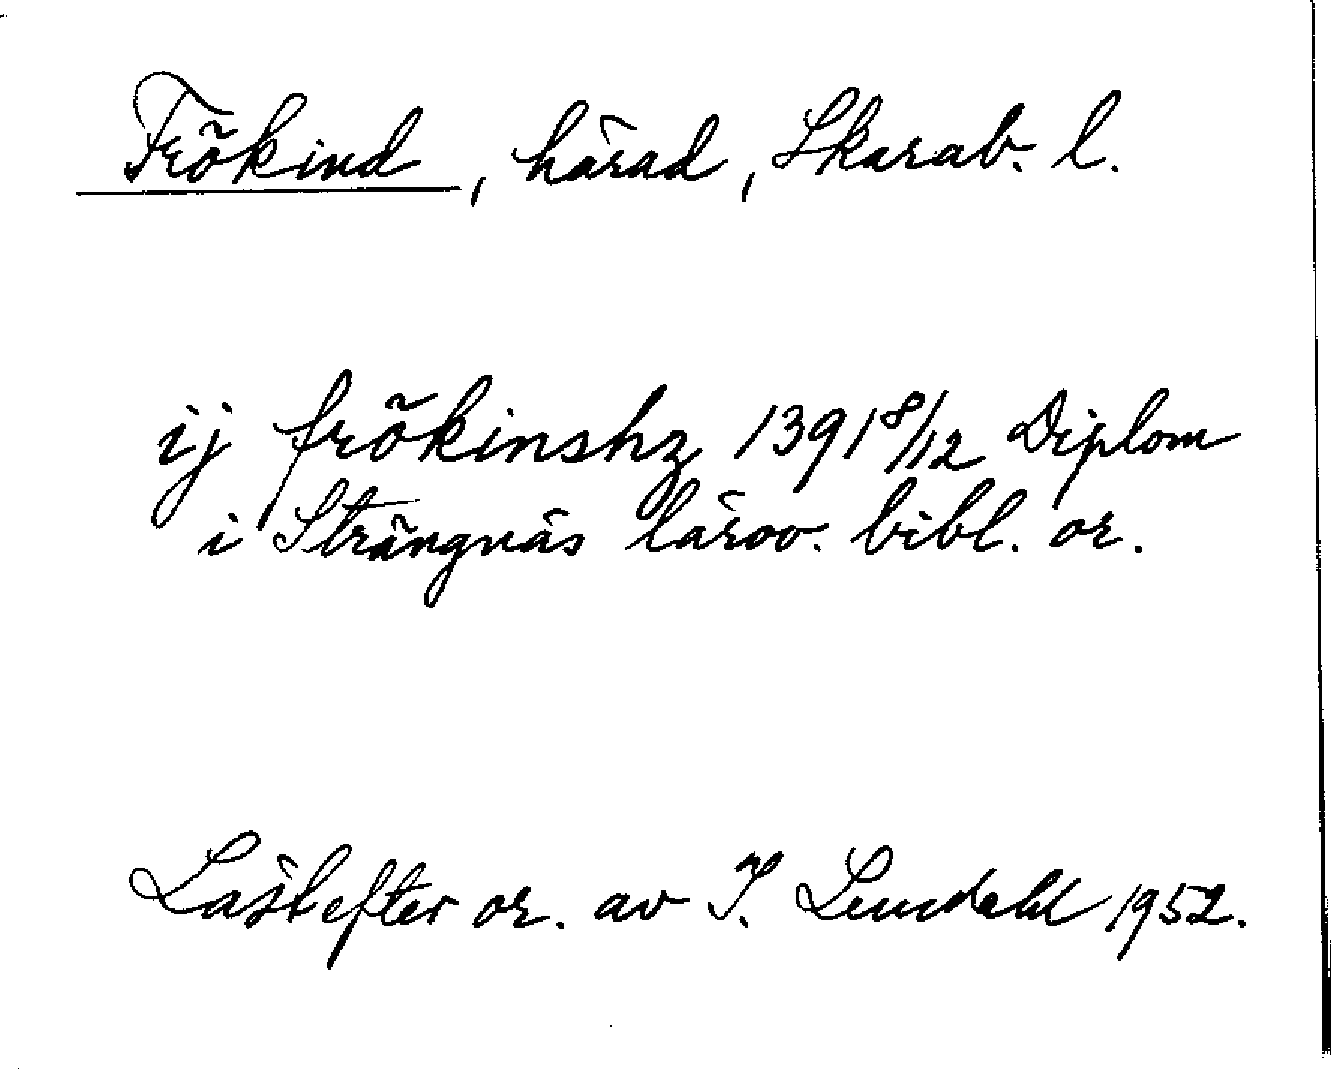 Frökind, härad, Skarab. l.
ij frökinshz 1391 8/12 Diplom
i Strängnäs lärov. bibl. or.
Läst efter or. av I. Lundahl 1952.